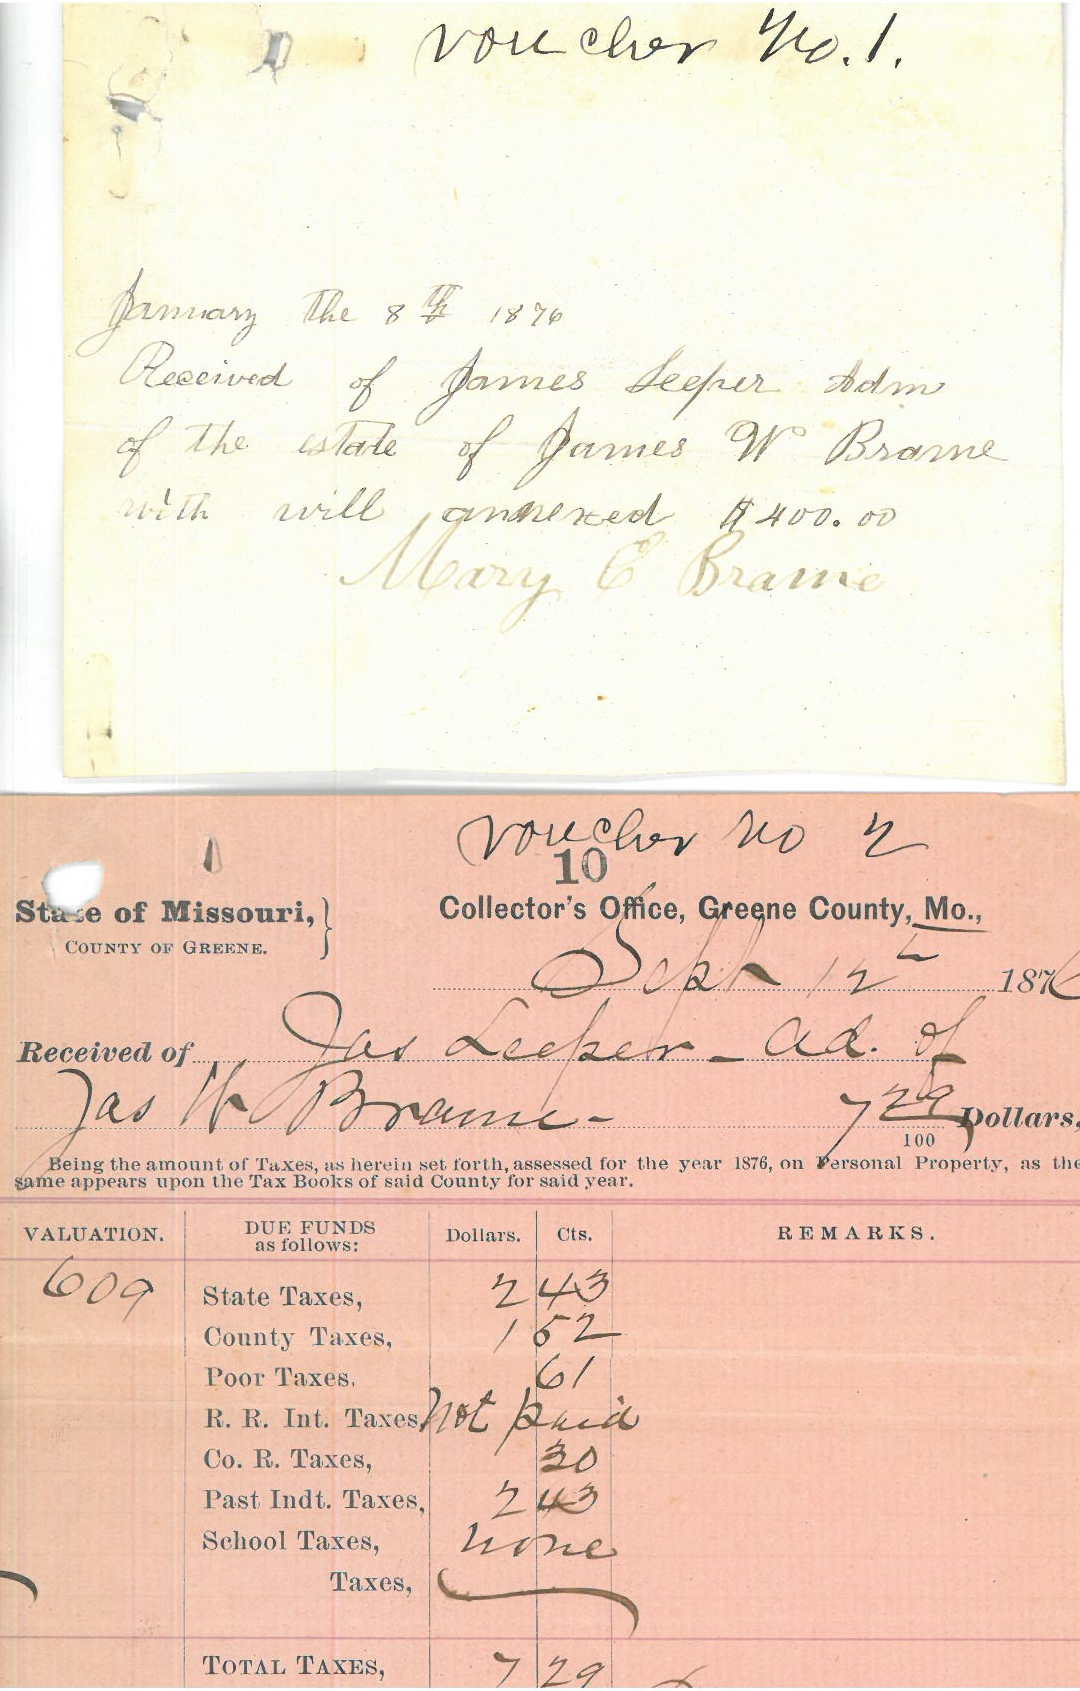 voucher No. 1.
January the 8th 1876
Received of James Leeper Adm
of the estate of James W Brame
with will annexed $400.00
Mary E Brame
voucher No 2
10
State of Missouri,
COUNTY OF GREENE.
Collector's Office, Greene County, Mo.,
Sept 12 1876
Received of Jas Leeper - ad. of
Jas W Brame - 7 29/100 Dollars,
Being the amount of Taxes, as herein set forth, assessed for the year 1876, on Personal Property, as the
same appears upon the Tax Books of said County for said year.
VALUATION. DUE FUNDS as follows: Dollars. Cts. REMARKS.
609 State Taxes, 2 43
County Taxes, 1 52
Poor Taxes. 61
R. R. Int. Taxes, Not paid
Co. R. Taxes, 30
Past Indt. Taxes, 2 43
School Taxes, none
Taxes,
TOTAL TAXES, 7 29